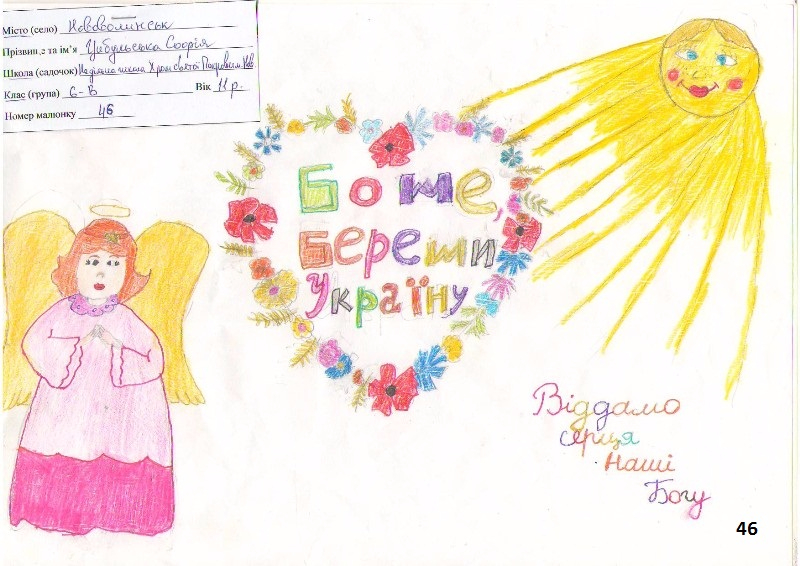 Місто (село) Нововолинськ
Прізвище та ім'я Цибульська Софія
Школа (садочок) Недільна школа Храм Святої Покрови м. Нов.
Клас (група) 6-В Вік 11 р.
Номер малюнку 46
Боже
Бережи
Україну
Віддамо
серця
Наші
Богу
46